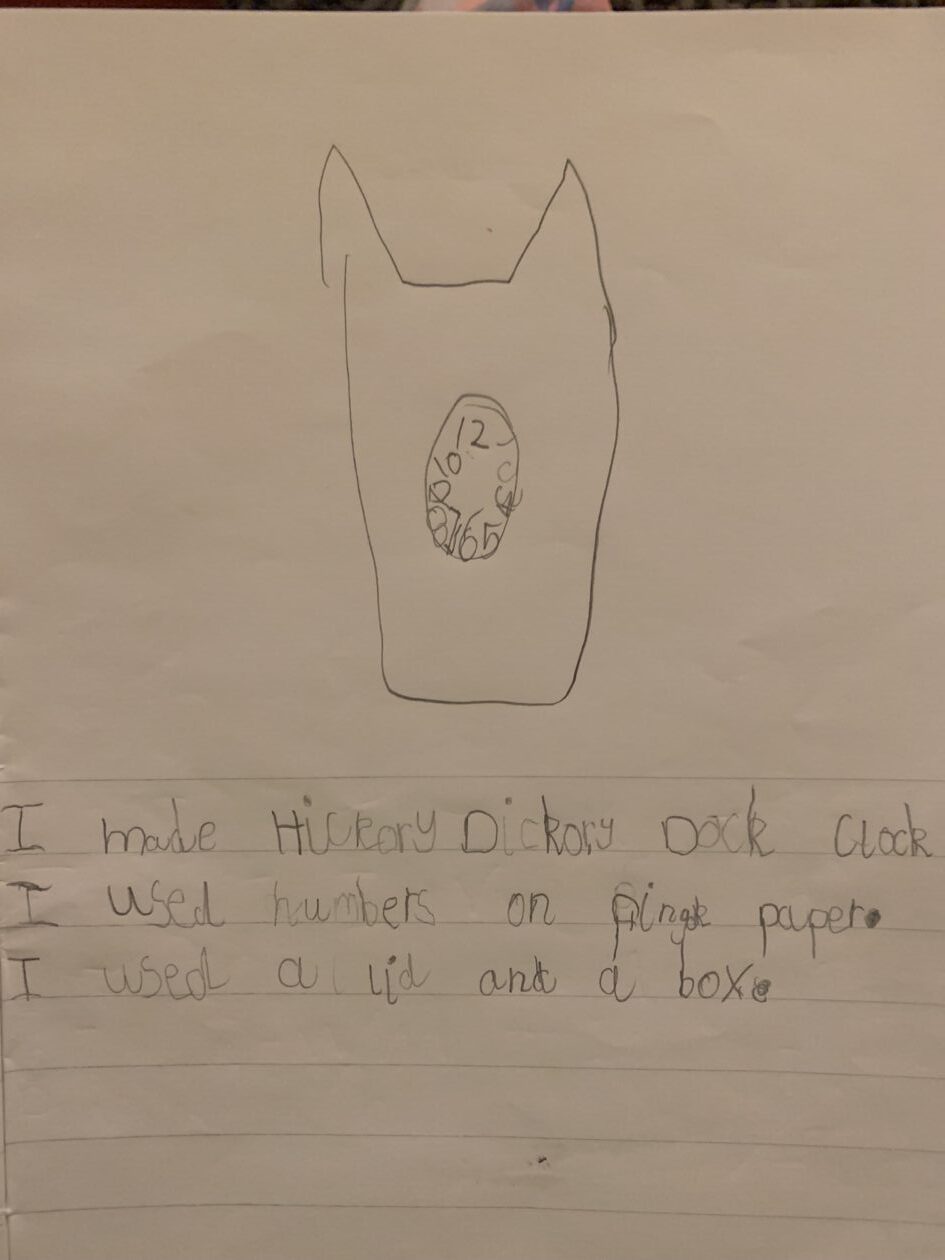 12
10
8765
I made Hickory Dickory Dock Clock
I used numbers on pink paper.
I used a lid and a box.